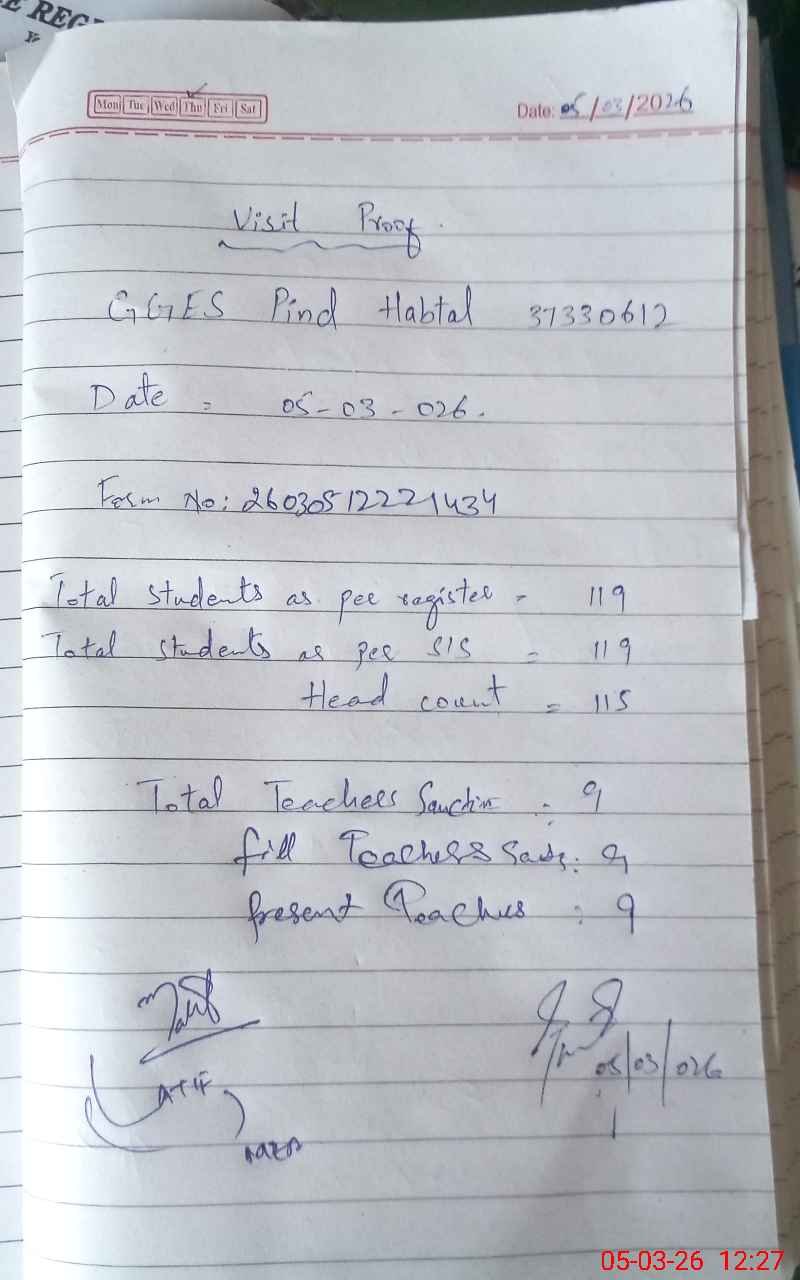 E REG
Mon Tue Wed Thu Fri Sat
Date: 05/03/2026
Visit Proof.
GGES Pind Habtal 37330612
Date = 05-03-026.
Form No: 26030512221434
Total Students as per register = 119
Total Students as per SIS = 119
Head count = 115
Total Teachers Sanction : 9
fill Teachers : 9
Present Teachers : 9
ATIF
05/03/026
05-03-26 12:27